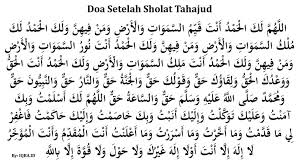 Doa Setelah Sholat Tahajud
اللَّهُمَّ لَكَ الْحَمْدُ أَنْتَ قَيِّمُ السَّمَوَاتِ وَالْأَرْضِ وَمَنْ فِيهِنَّ وَلَكَ الْحَمْدُ لَكَ
مُلْكُ السَّمَوَاتِ وَالْأَرْضِ وَمَنْ فِيهِنَّ وَلَكَ الْحَمْدُ أَنْتَ نُورُ السَّمَوَاتِ وَالْأَرْضِ
وَمَنْ فِيهِنَّ وَلَكَ الْحَمْدُ أَنْتَ مَلِكُ السَّمَوَاتِ وَالْأَرْضِ وَلَكَ الْحَمْدُ أَنْتَ الْحَقُّ
وَوَعْدُكَ الْحَقُّ وَلِقَاؤُكَ حَقٌّ وَقَوْلُكَ حَقٌّ وَالْجَنَّةُ حَقٌّ وَالنَّارُ حَقٌّ وَالنَّبِيُّونَ حَقٌّ
وَمُحَمَّدٌ صَلَّى اللَّهُ عَلَيْهِ وَسَلَّمَ حَقٌّ وَالسَّاعَةُ حَقٌّ اللَّهُمَّ لَكَ أَسْلَمْتُ وَبِكَ
آمَنْتُ وَعَلَيْكَ تَوَكَّلْتُ وَإِلَيْكَ أَنَبْتُ وَبِكَ خَاصَمْتُ وَإِلَيْكَ حَاكَمْتُ فَاغْفِرْ
لِي مَا قَدَّمْتُ وَمَا أَخَّرْتُ وَمَا أَسْرَرْتُ وَمَا أَعْلَنْتُ أَنْتَ الْمُقَدِّمُ وَأَنْتَ الْمُؤَخِّرُ
لَا إِلَهَ إِلَّا أَنْتَ أَوْ لَا إِلَهَ غَيْرُكَ وَلَا حَوْلَ وَلَا قُوَّةَ إِلَّا بِاللَّهِ
By: IQRA.ID